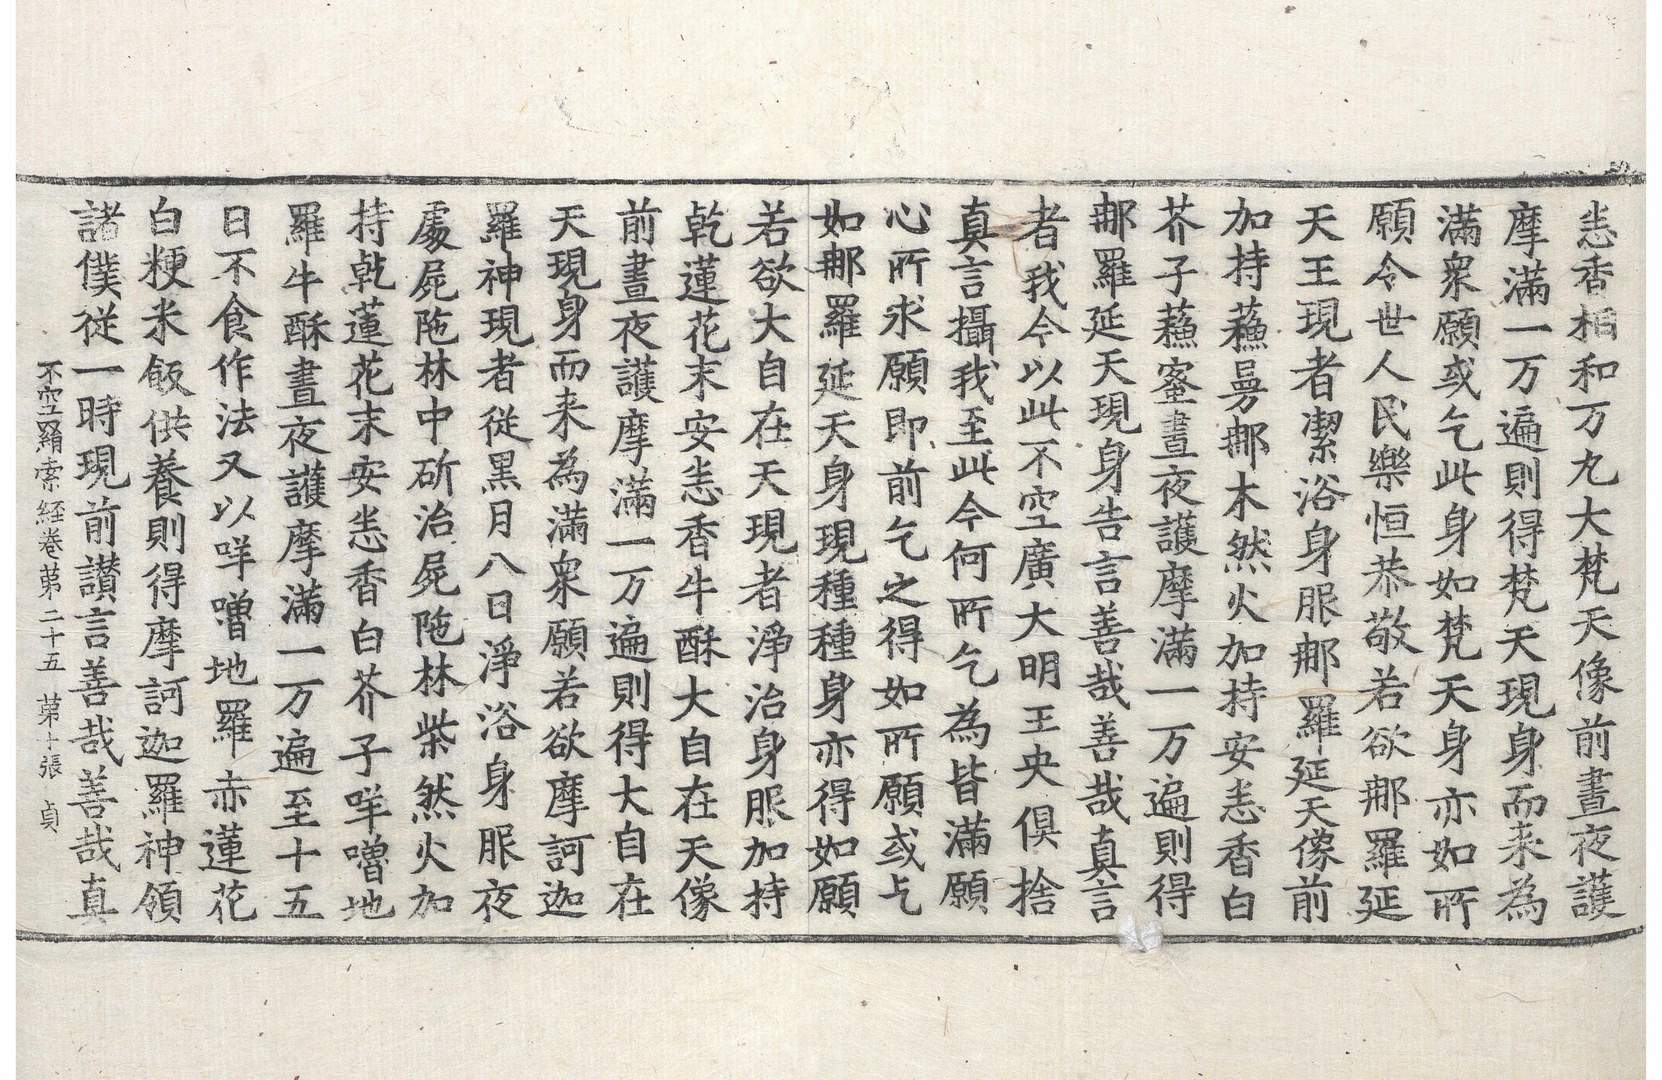 恙香相和万九大梵天像前晝夜護
摩滿一万遍則得梵天現身而来為
滿衆願或乞此身如梵天身亦如所
願令世人民樂恒恭敬若欲郍羅延
天王現者潔浴身服郍羅延天像前
加持蘓曼郍木然火加持安恙香白
芥子蘓蜜晝夜護摩滿一万遍則得
郍羅延天現身告言善哉善哉真言
者我今以此不空廣大明王央俱捨
真言攝我至此今何所乞為皆滿願
心所求願即前乞之得如所願或乞
如郍羅延天身現種種身亦得如願
若欲大自在天現者淨治身服加持
乾蓮花末安恙香牛酥大自在天像
前晝夜護摩滿一万遍則得大自在
天現身而来為滿衆願若欲摩訶迦
羅神現者從黒月八日淨浴身服夜
處屍陁林中斫治屍陁林柴然火加
持乾蓮花末安恙香白芥子咩嚕地
羅牛酥晝夜護摩滿一万遍至十五
日不食作法又以咩嚕地羅赤蓮花
白粳米飯供養則得摩訶迦羅神領
諸僕從一時現前讃言善哉善哉真
不空羂索経卷苐二十五 苐十張 貞